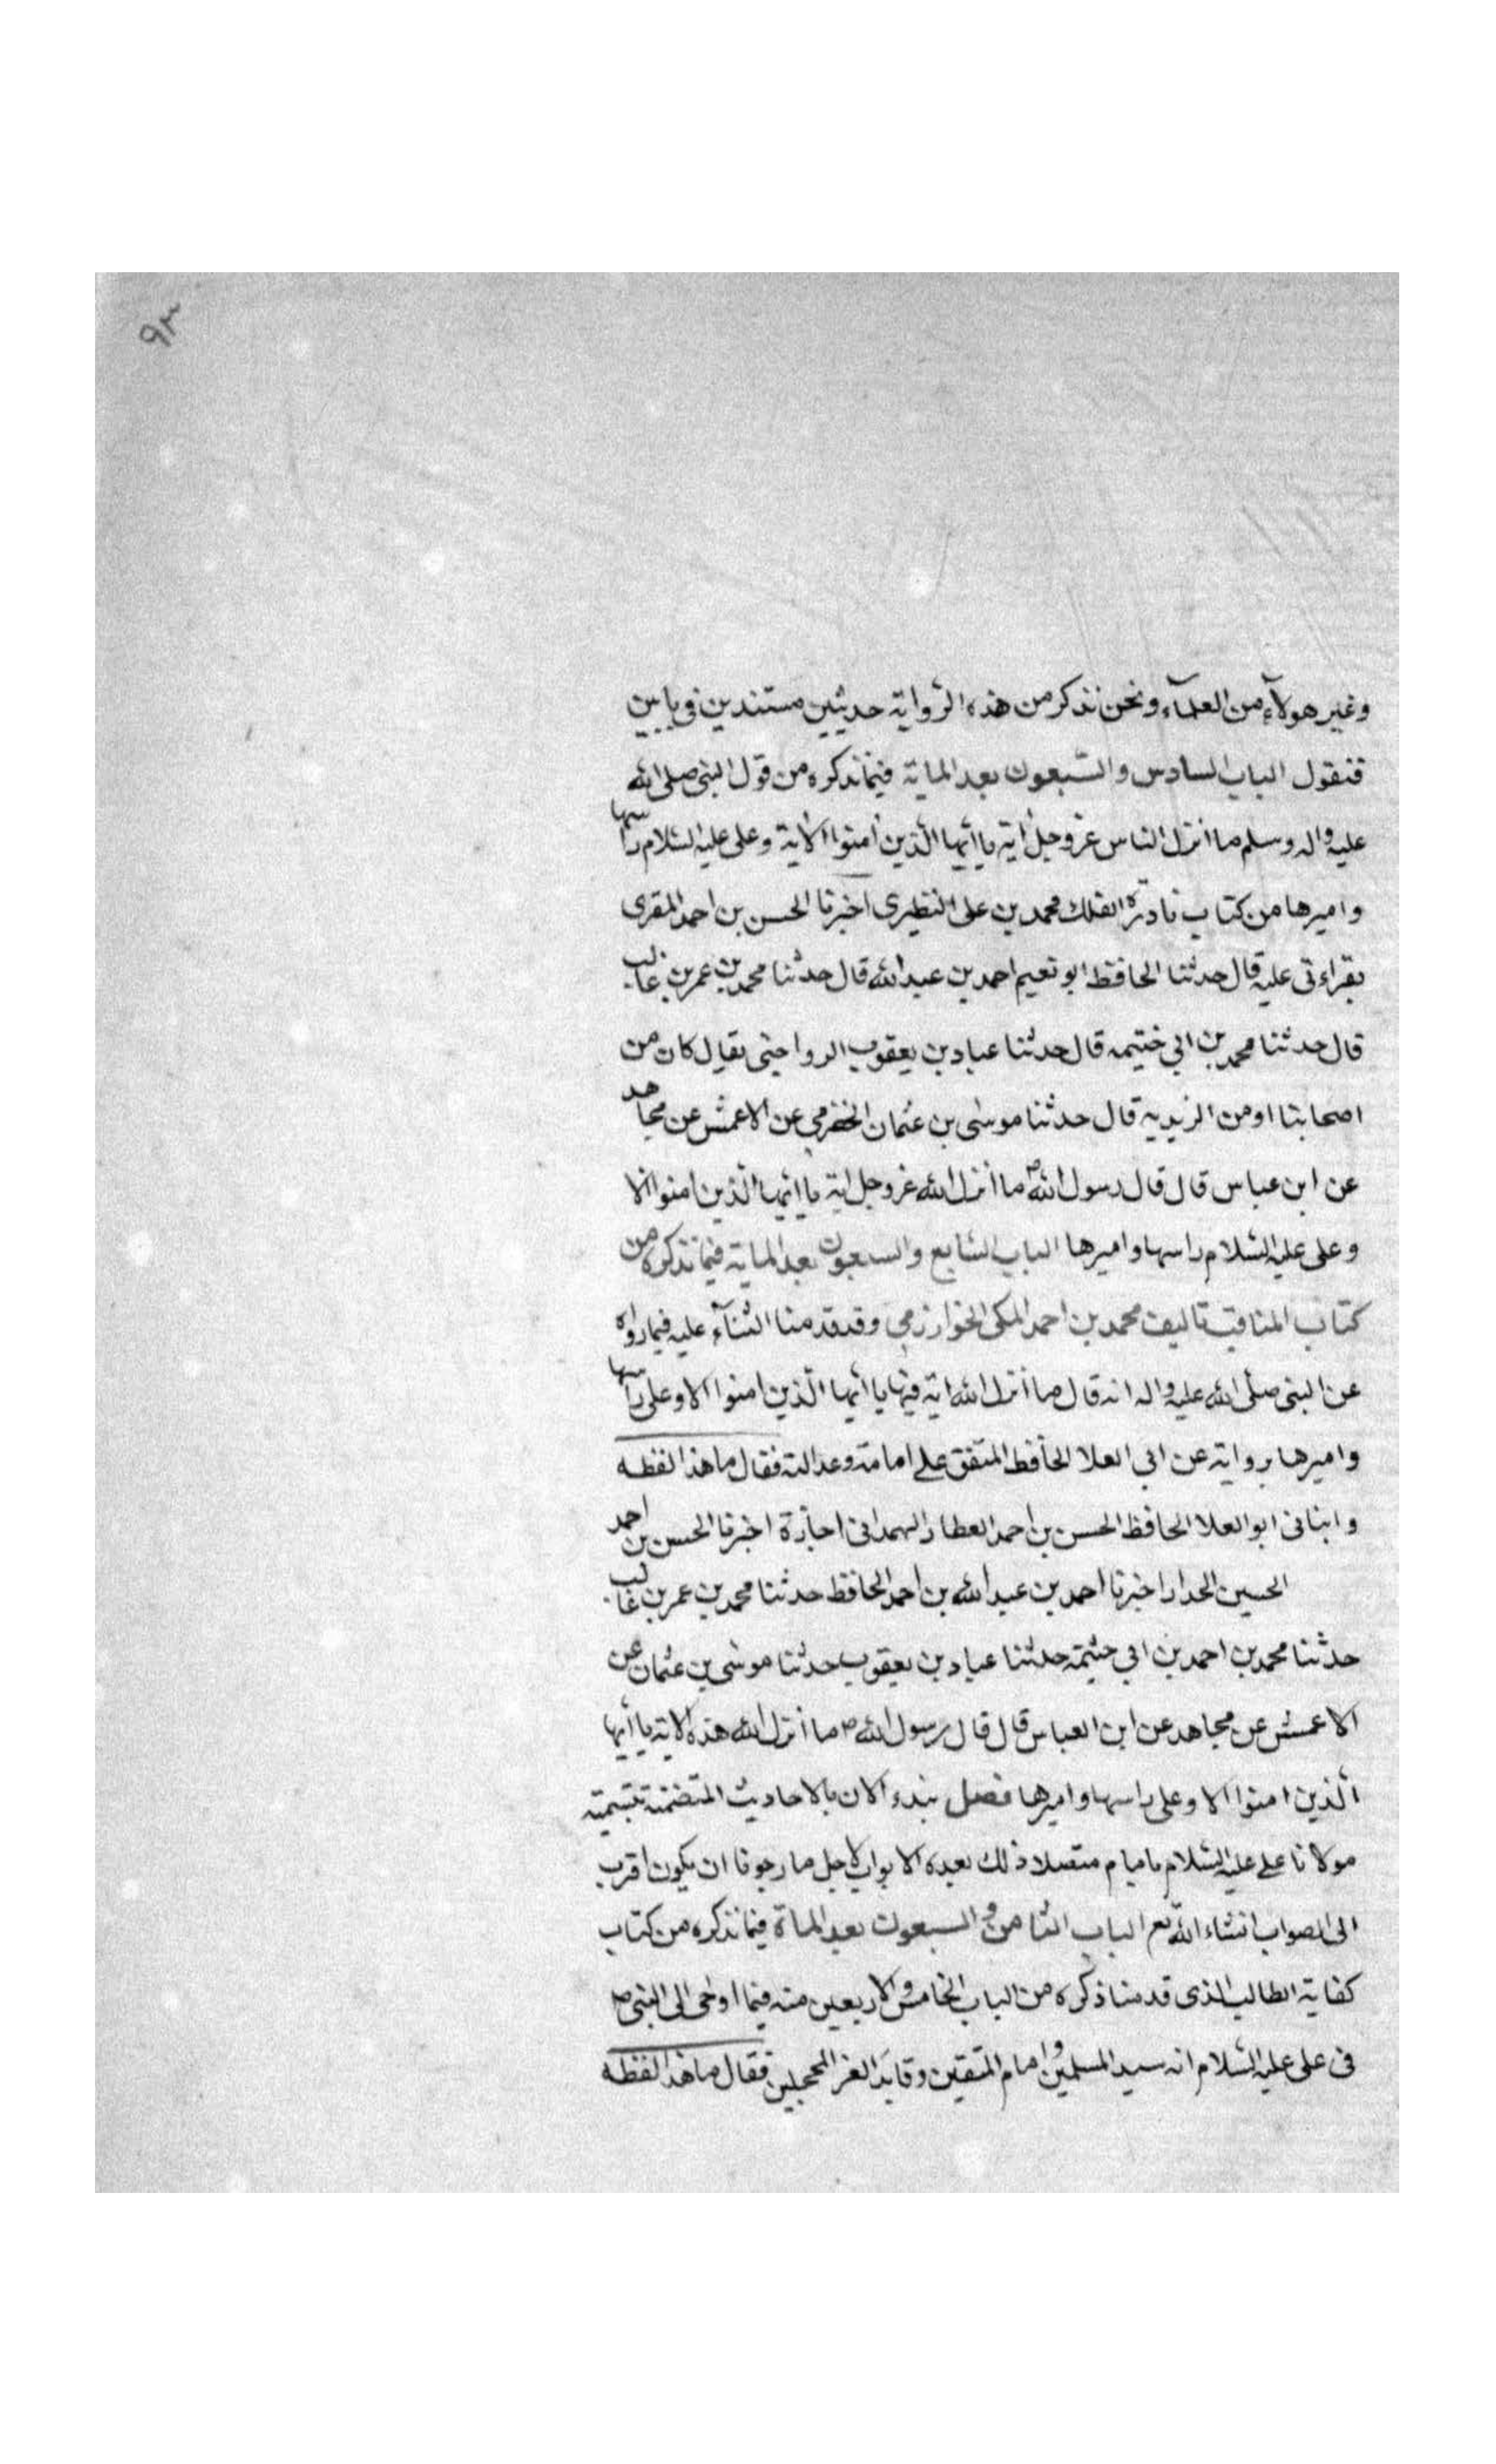 ٩٣
وغير هولآء من العلمآء ونحن نذكر من هذه الرّواية حديثين مستندين فى بابين
فنقول الباب السادس والسّبعون بعد الماية فيما نذكره من قول النبى صلى الله
عليه واله وسلم ما انزل الناس عز وجل اية يا ايّها الّذين امنوا الاية وعلى عليه السّلام راسها
واميرها من كتاب نادرة الفلك محمد بن على النظيرى اخبرنا الحسن بن احمد المقرى
بقراءتى عليه قال حدثنا الحافظ ابو نعيم احمد بن عبد الله قال حدثنا محمد بن عمر بن غالب
قال حدثنا محمد بن ابى خثيمه قال حدثنا عباد بن يعقوب الرواجنى يقال كان من
اصحابنا او من الزيديه قال حدثنا موسى بن عثمان الحضرمي عن الاعمش عن مجاهد
عن ابن عباس قال قال رسول الله ص ما انزل الله عز وجل اية يا ايّها الّذين امنوا الا
وعلى عليه السّلام راسها واميرها الباب السّابع والسبعون بعد الماية فيما نذكره من
كتاب المناقب تاليف محمد بن احمد المكى الخوارزمي وقد قدمنا الثنآء عليه فيما رواه
عن النبى صلى الله عليه واله انه قال ما انزل الله اية فيها يا ايّها الّذين امنوا الا وعلى راسها
واميرها برواية عن ابى العلا الحافظ المتّفق على امامته وعدالته فقال ما هذا لفظه
وانبانى ابو العلا الحافظ الحسن بن احمد العطار الهمدانى اجازة اخبرنا الحسن بن احمد
الحسين الحدار اخبرنا احمد بن عبد الله بن احمد الحافظ حدثنا محمد بن عمر بن غالب
حدثنا محمد بن احمد بن ابى خثيمة حدثنا عباد بن يعقوب حدثنا موسى بن عثمان عن
الاعمش عن مجاهد عن ابن العباس قال قال رسول الله ص ما انزل الله هذه الاية يا ايّها
الّذين امنوا الا وعلى راسها واميرها فصل نبدء الان بالاحاديث المتضمنة بتسميته
مولانا على عليه السّلام بامام متصلا ذلك بعده الابواب لاجل ما رجونا ان يكون اقرب
الى الصواب انشاء الله تع الباب الثامن والسبعون بعد الماة فيما نذكره من كتاب
كفاية الطالب الذى قدمنا ذكره من الباب الخامس والاربعين منه فيما اوحى الى النبى ص
فى على عليه السّلام انه سيد المسلمين وامام المتقين وقايد الغر المحجلين فقال ما هذا لفظه